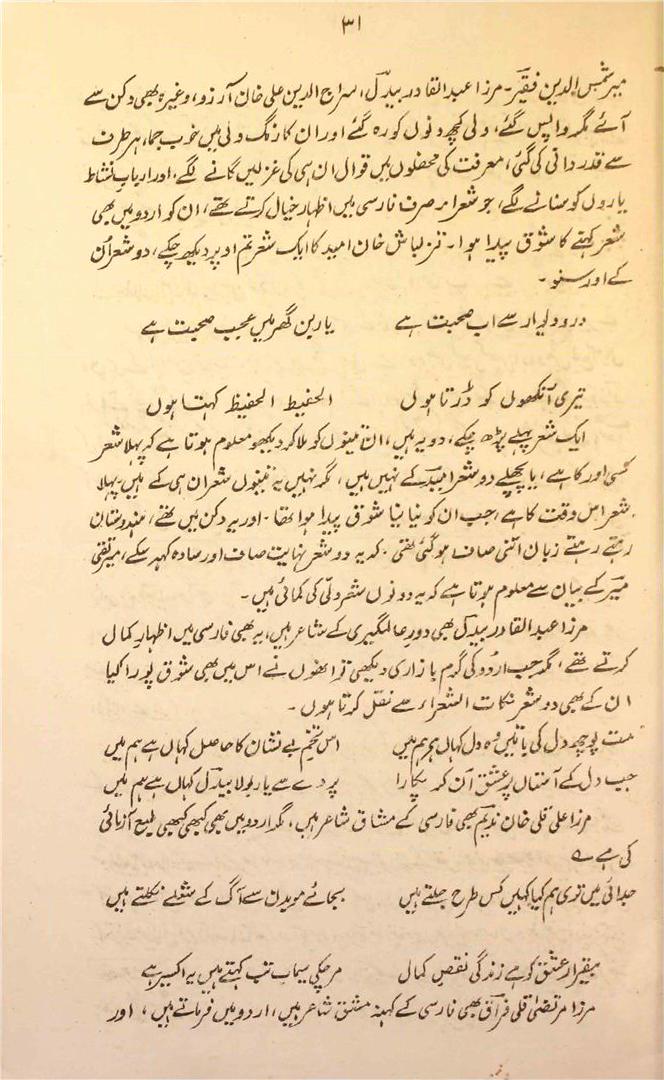 ۳۱
میر شمس الدین فقیر۔ مرزا عبدالقادر بیدل، سراج الدین علی خان آرزو، وغیرہ بھی دکن سے
آئے مگر واپس گئے، ولی کچھ دنوں کو رہ گئے اور ان کا رنگ ولی میں خوب جما، ہر طرف
سے قدر دانی کی گئی، معرفت کی محفلوں میں قوال ان ہی کی غزلیں گانے لگے، اور ارباب نشاط
یاروں کو سنانے لگے، جو شعراء صرف فارسی میں اظہار خیال کرتے تھے، ان کو اردو میں بھی
شعر کہنے کا شوق پیدا ہوا۔ قزلباش خان امید کا ایک شعر تم اوپر دیکھ چکے، دو شعر اُن
کے اور سنو۔
در و دیوار سے اب صحبت ہے یار بن گھر میں عجیب صحبت ہے
تیری آنکھوں کو ڈرتا ہوں الحفیظ الحفیظ کہتا ہوں
ایک شعر پہلے پڑھ چکے، دو یہ ہیں، ان تینوں کو ملا کر دیکھو معلوم ہوتا ہے کہ پہلا شعر
کسی اور کا ہے، یا پچھلے دو شعر امید کے نہیں ہیں، مگر نہیں یہ تینوں شعر ان ہی کے ہیں۔ پہلا
شعر اس وقت کا ہے، جب ان کو نیا نیا شوق پیدا ہوا تھا۔ اور یہ دکن میں تھے، ہندوستان
رہتے رہتے زبان اتنی صاف ہو گئی تھی۔ کہ یہ دو شعر نہایت صاف اور سادہ کہہ سکے، میر تقی
میر کے بیان سے معلوم ہوتا ہے کہ یہ دونوں شعر دلّی کی کمائی ہیں۔
مرزا عبدالقادر بیدل بھی دورِ عالمگیری کے شاعر ہیں، یہ بھی فارسی میں اظہار کمال
کرتے تھے، مگر جب اردو کی گرم بازاری دیکھی تو انھوں نے اس میں بھی شوق پورا کیا
ان کے بھی دو شعر نکات الشعراء سے نقل کرتا ہوں۔
مت پوچھ دل کی باتیں وہ دل کہاں ہے ہم میں اس تخم بے نشان کا حاصل کہاں ہے ہم میں
جب دل کے آستاں پر عشق آن کر پکارا پردے سے یار بولا بیدل کہاں ہے ہم میں
مرزا علی قلی خان ندیم بھی فارسی کے مشاق شاعر ہیں، مگر اردو میں بھی کبھی کبھی طبع آزمائی
کی ہے ؎
جدائی میں تری ہم کیا کہیں کس طرح جلتے ہیں بجائے مو بدن سے آگ کے شعلے نکلتے ہیں
بیقرار عشق کو ہے زندگی نقص کمال مر چکی سیماب تب کہتے ہیں یہ اکسیر ہے
مرزا مرتضیٰ قلی فراق بھی فارسی کے کہنہ مشق شاعر ہیں، اردو میں فرماتے ہیں، اور